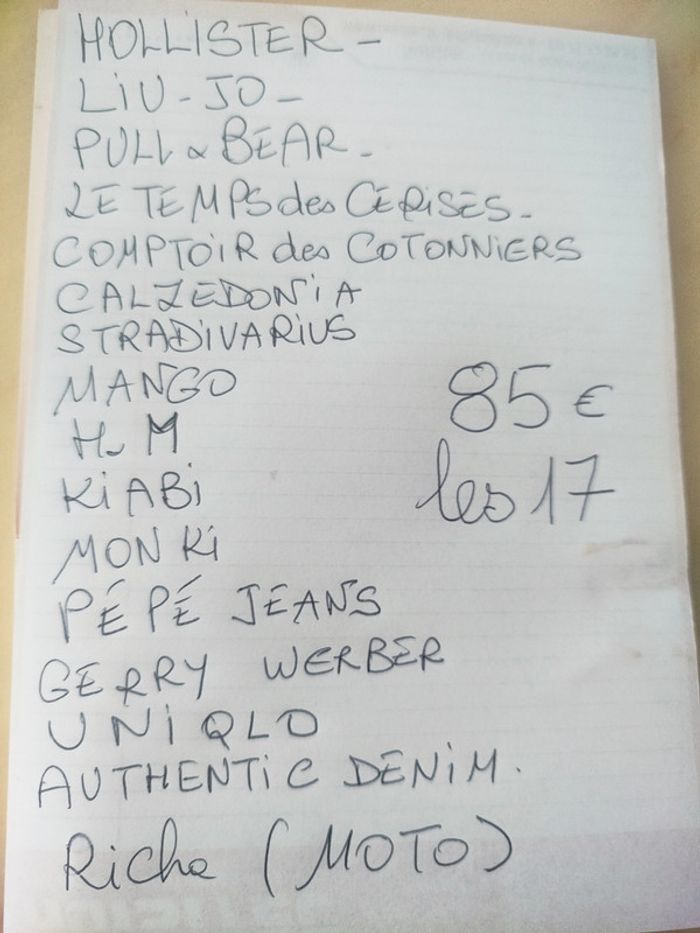 HOLLISTER -
LIU - JO -
PULL & BEAR -
LE TEMPS des CERISES -
COMPTOIR des COTONNIERS
CALZEDONIA
STRADIVARIUS
MANGO
H - M
KIABI
MONKI
PÉPÉ JEANS
GERRY WERBER
UNIQLO
AUTHENTIC DENIM.
Richa (MOTO)
85 €
les 17